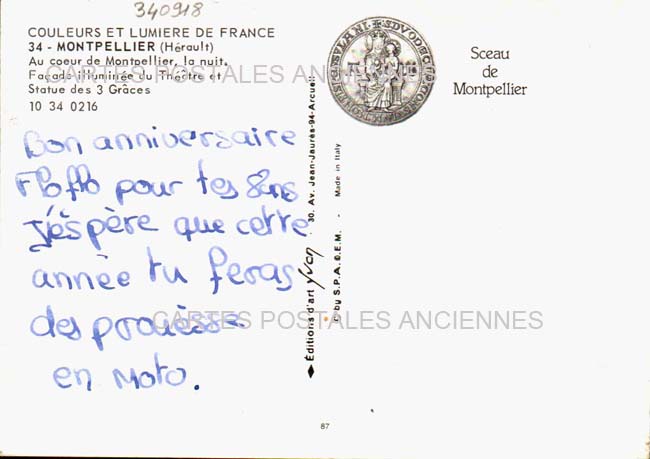 340918
COULEURS ET LUMIERE DE FRANCE
34 - MONTPELLIER (Hérault)
Au coeur de Montpellier, la nuit.
Façade illuminée du Théâtre et
Statue des 3 Grâces
10 34 0216
CARTES POSTALES ANCIENNES
Sceau
de
Montpellier
Bon anniversaire
Floflo pour tes 8ans
J'espère que cette
année tu feras
des prouèsse
en Moto.
CARTES POSTALES ANCIENNES
Éditions d'art Yvon 30, Av. Jean-Jaurès-94-Arcueil
© by S.P.A.D.E.M. - Made in Italy
87